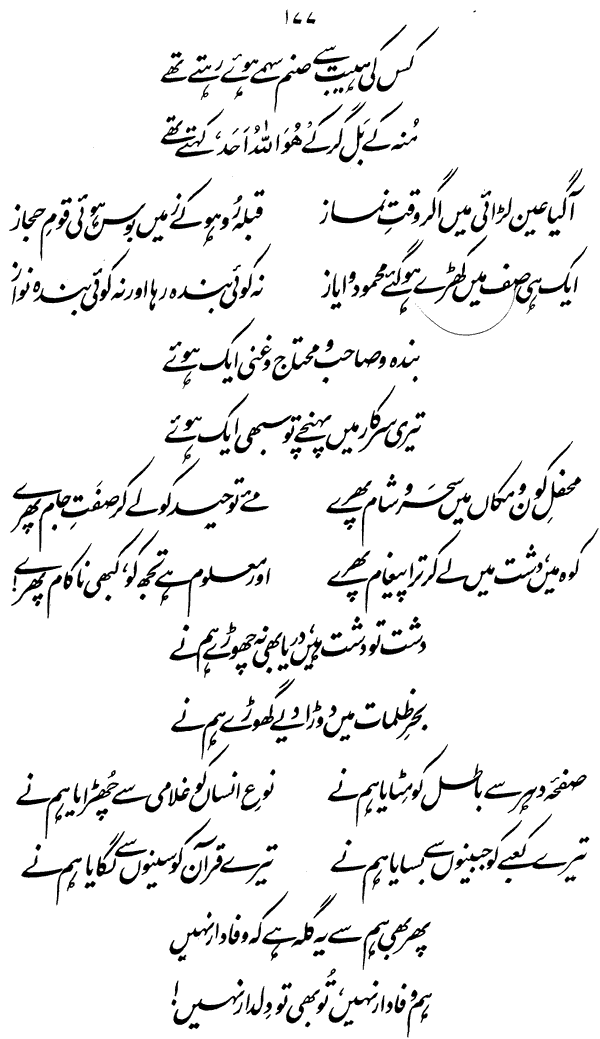 ۱۷۷
کس کی ہیبت سے صنم سہمے ہوئے رہتے تھے
مُنہ کے بَل گر کے ’ھُوَ اللہُ اَحَد‘ کہتے تھے
آگیا عین لڑائی میں اگر وقتِ نماز قبلہ رُو ہو کے زمیں بوس ہوئی قومِ حجاز
ایک ہی صف میں کھڑے ہو گئے محمود و ایاز نہ کوئی بندہ رہا اور نہ کوئی بندہ نواز
بندہ و صاحب و محتاج و غنی ایک ہوئے
تیری سرکار میں پہنچے تو سبھی ایک ہوئے
محفلِ کون و مکاں میں سحَر و شام پھرے مئے توحید کو لے کر صفَتِ جام پھرے
کوہ میں، دشت میں لے کر ترا پیغام پھرے اور معلوم ہے تجھ کو، کبھی ناکام پھرے!
دشت تو دشت ہیں، دریا بھی نہ چھوڑے ہم نے
بحرِ ظلمات میں دوڑا دیے گھوڑے ہم نے
صفحۂ دہر سے باطل کو مِٹایا ہم نے نوعِ انساں کو غلامی سے چُھڑایا ہم نے
تیرے کعبے کو جبینوں سے بسایا ہم نے تیرے قرآن کو سینوں سے لگایا ہم نے
پھر بھی ہم سے یہ گلہ ہے کہ وفادار نہیں
ہم وفادار نہیں، تُو بھی تو دِلدار نہیں!